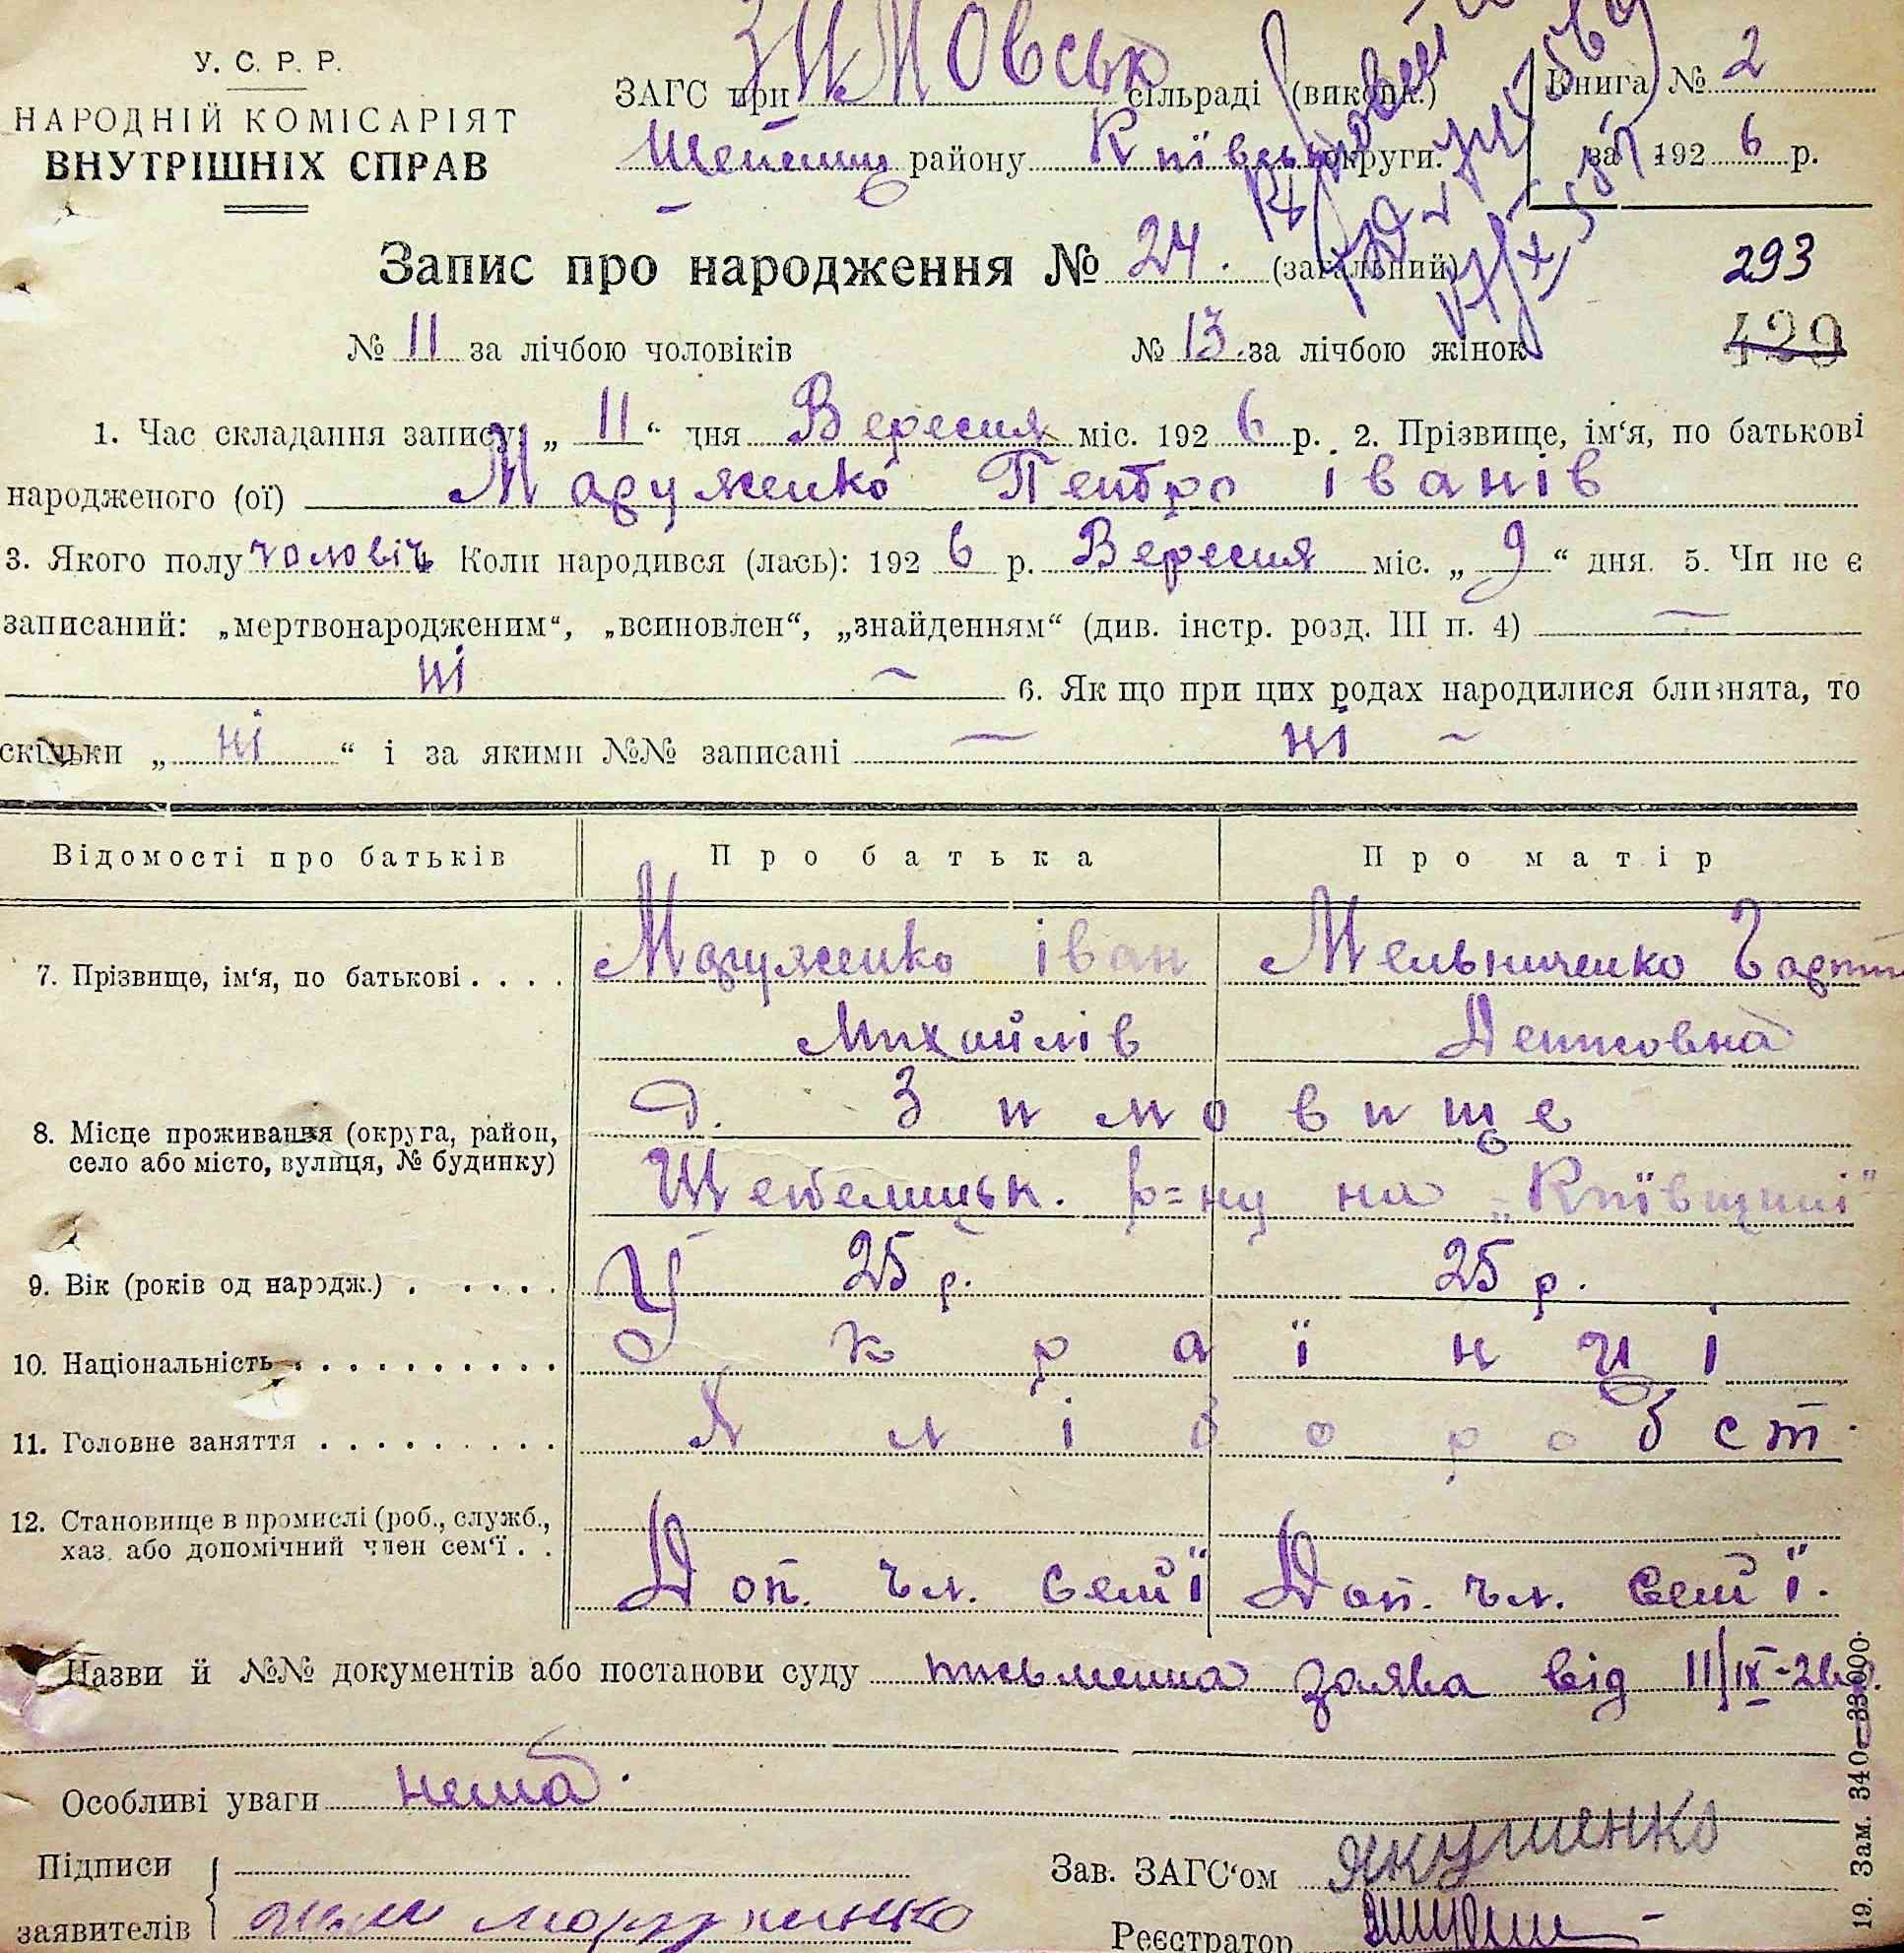 У. С. Р. Р.
НАРОДНІЙ КОМІСАРІЯТ
ВНУТРІШНІХ СПРАВ
ЗАГС при Зимовськ сільраді (викопк.)
Шепелиц району Київської округи.
Книга № 2
за 1926 р.
Запис про народження № 24. (загальний)
293
№ 11 за лічбою чоловіків № 13 за лічбою жінок
429
1. Час складання запису: „ 11 “ дня Вересня міс. 1926 р. 2. Прізвище, ім‘я, по батькові
народженого (ої) Маруженко Петро Іванів
3. Якого полу чоловіч Коли народився (лась): 1926 р. Вересня міс. „ 9 “ дня. 5. Чи не є
записаний: „мертвонародженим“, „всиновлен“, „знайденням“ (див. інстр. розд. III п. 4) —
ні — 6. Як що при цих родах народилися близнята, то
скільки „ ні “ і за якими №№ записані — ні —
Відомості про батьків Про батька Про матір
7. Прізвище, ім‘я, по батькові . . . . Маруженко Іван Мельниченко
Михайлів
8. Місце проживання (округа, район, д. Зимовище
село або місто, вулиця, № будинку) Шепелицьк. р=ну на „Київщині“
9. Вік (років од народж.) . . . . . 25 р. 25 р.
10. Національність . . . . . . . . . . Українці
11. Головне заняття . . . . . . . . . Хліборобст.
12. Становище в промислі (роб., служб.,
хаз. або допомічний член сем‘ї . . Доп. чл. семї Доп. чл. семї.
Назви й №№ документів або постанови суду письменна заява від 11/IX-26р.
Особливі уваги нема.
Підписи
заявителів Маруженко
Зав. ЗАГС‘ом Якушенко
Реєстратор
19. Зам. 340—33000.